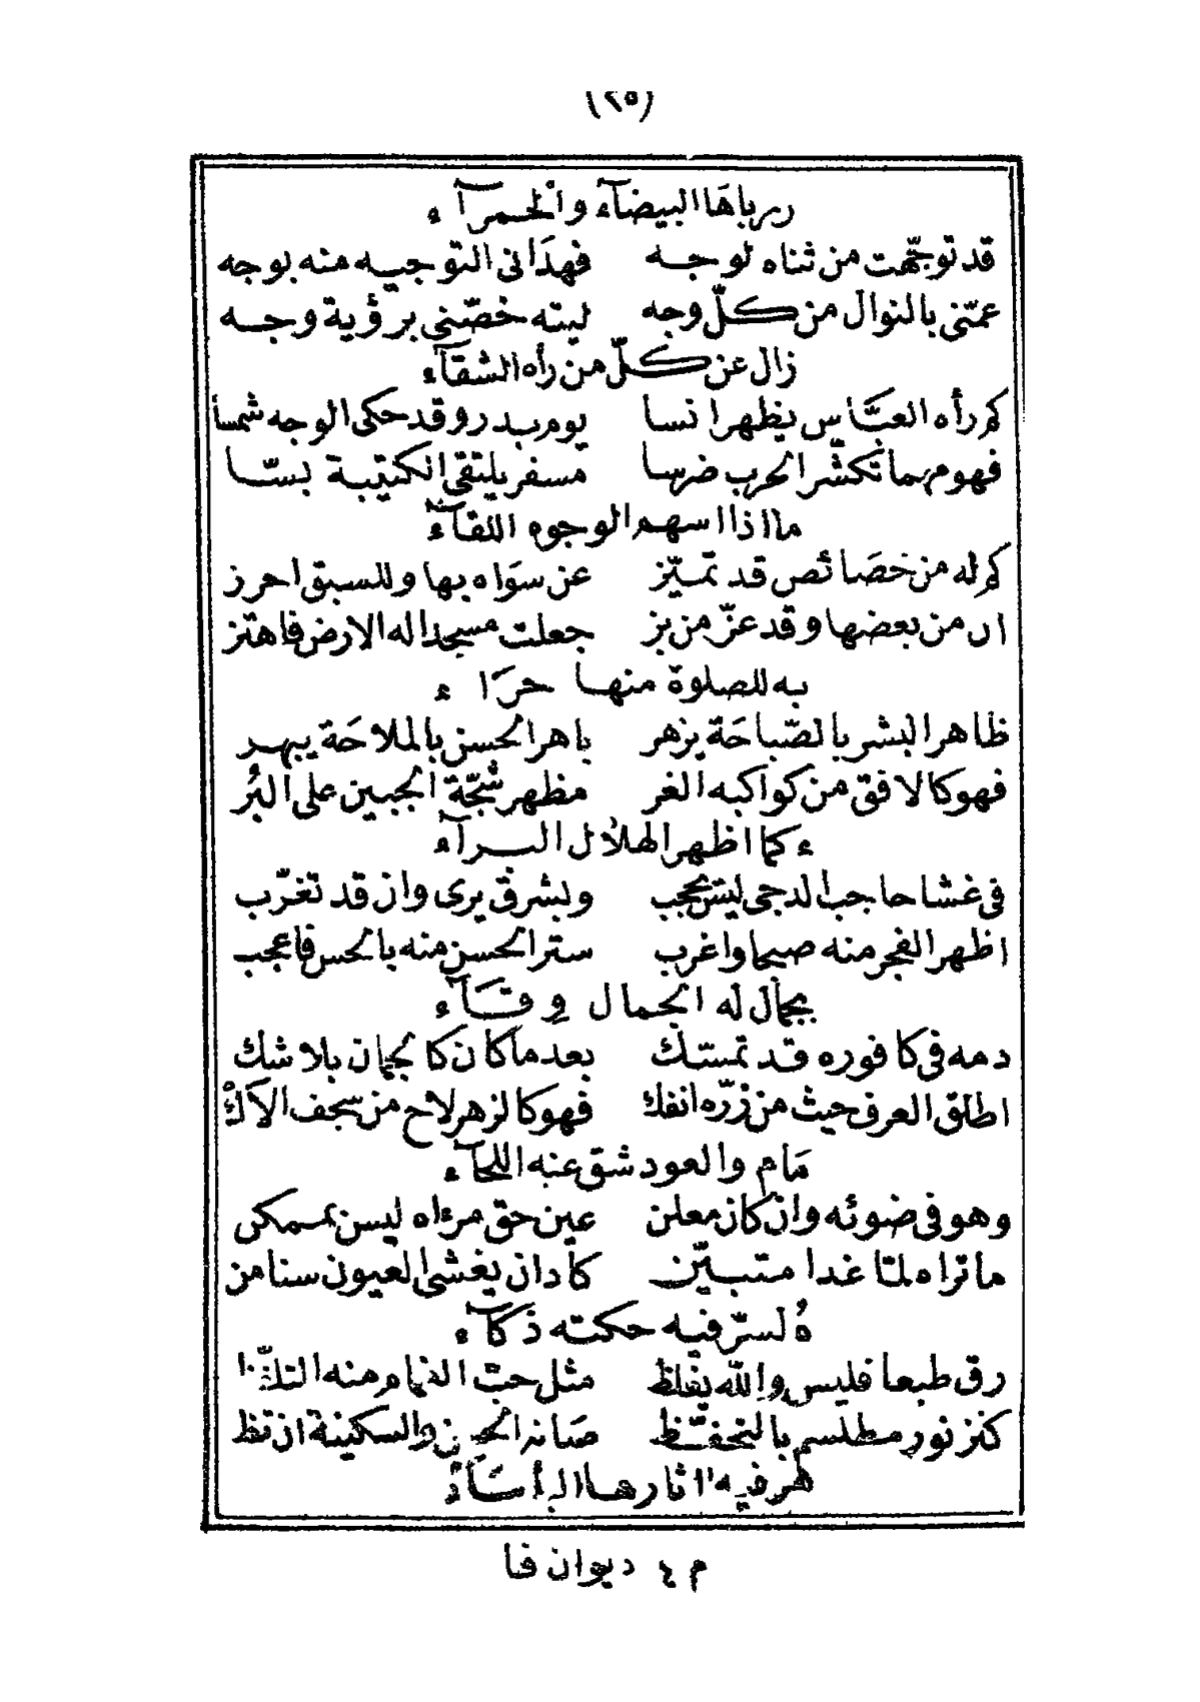 (٢٥)
ر برباهَا البيضآء والحمرآء
قد توجّهت من ثناه لوجه فهدَانى التوجيه منه بوجه
عمّنى بالنوال من كلّ وجه ليته خصّنى برؤية وجه
زال عن كلّ من رأه الشقآء
كم رأه العبّاس يظهر انسا يوم بدر وقد حكى الوجه شمسا
فهو مهما تكشّر الحرب ضرسا مسفر يلتقى الكتيبة بسّا
ما اذا اسهم الوجوه اللقآء
كم له من خصَائص قد تميّز عن سوَاه بها وللسبق احرز
ان من بعضها وقد عزّ من بز جعلت مسجدا له الارض فاهتز
به للصلوة منها حرَاء
ظاهر البشر بالصّباحَة يزهر باهر الحسن بالملاحَة يبهر
فهو كالافق من كواكبه الغر مظهر شجّة الجبين على البُر
ء كما اظهر الهلال البرآء
فى غشا حاجب الدجى ليس يحجب ولبشر ق يرى وان قد تغرّب
اظهر الفجر منه صبحا واغرب ستر الحسن منه بالحسن فاعجب
بجمال له الجمال وقَآء
دمه فى كافوره قد تمسّك بعد ما كان كالجمان بلا شك
اطلق العرف حيث من زرّه انفك فهو كالزهر لاح من سجف الاك
مَام والعود شق عنه اللحآء
وهو فى ضوئه وان كان معلن عين حق مرءاه ليس بممكن
ما تراه لمّا غدا متبيّن كادان يغشى العيون سنا من
هُ لسرّ فيه حكته ذكآء
رق طبعا فليس والله يغلظ مثل حبّ الغمام منه التلفّظ
كنز نور مطلسم بالتحفّظ صَانه الحسن والسكينة ان تظ
هر فيه اثارها البأسَآء
م ٤ ديوان فا